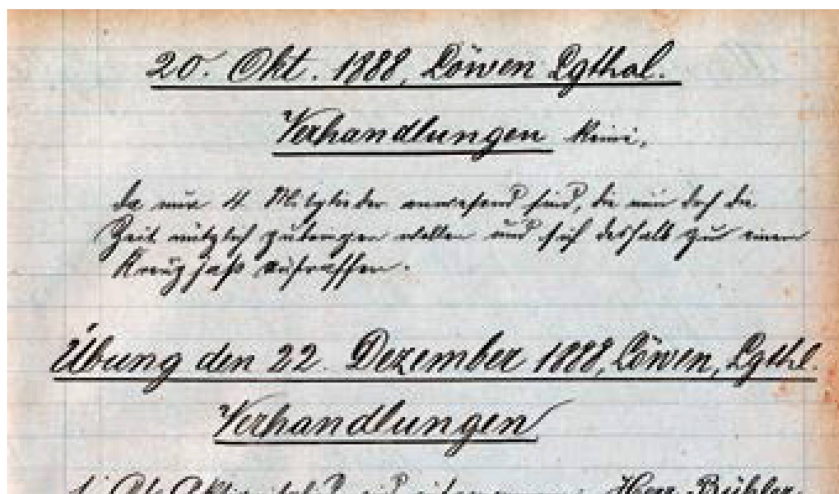 20. Okt. 1888, Löwen Lgthal.
Verhandlungen keine,
da nur 4 Mitglieder anwesend sind, die nun doch die
Zeit nützlich zubringen wollen und sich deshalb zu einem
Kreuzjaß aufraffen.
Übung den 22. Dezember 1888, Löwen, Lgthl.
Verhandlungen
1. Als Aktivmitglied wird aufgenommen: Herr Beibler